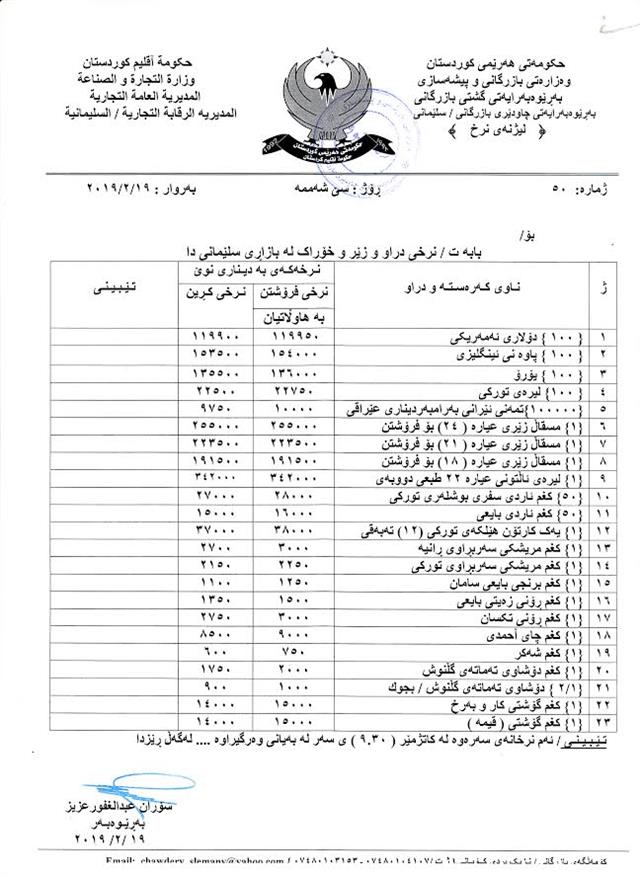 حکومەتی هەرێمی کوردستان
وەزارەتی بازرگانی و پیشەسازی
بەڕێوەبەرایەتی گشتی بازرگانی
بەڕێوەبەرایەتی چاودێری بازرگانی / سلێمانی
﴿ لیژنەی نرخ ﴾
حكومة أقليم كوردستان
وزارة التجارة و الصناعة
المديرية العامة التجارية
المديريه الرقابة التجارية / السليمانية
حکومەتی هەرێمی کوردستان
حكومة اقليم كردستان
ژمارە: ٥٠ ڕۆژ : سێ شەممە بەروار : ٢٠١٩/٢/١٩
بۆ/
بابە ت / نرخی دراو و زێر و خۆراک لە بازاڕی سلێمانی دا
ژ ناوی کەرەستە و دراو نرخەکەی بە دیناری نوێ تێبینی
نرخی فرۆشتن بە هاوڵاتیان نرخی کڕین
١ { ١٠٠ } دۆلاری ئەمەریکی ١١٩٩٥٠ ١١٩٩٠٠
٢ { ١٠٠ } پاوە نی ئینگلیزی ١٥٤٠٠٠ ١٥٣٥٠٠
٣ { ١٠٠ } یۆرۆ ١٣٦٠٠٠ ١٣٥٥٠٠
٤ { ١٠٠ } لیرەی تورکی ٢٢٧٥٠ ٢٢٥٠٠
٥ {١٠٠٠٠٠}تمەنی ئێرانی بەرامبەردیناری عێراقی ١٠٠٠٠ ٩٧٥٠
٦ {١} مسقاڵ زێری عیارە ( ٢٤) بۆ فرۆشتن ٢٥٥٠٠٠ ٢٥٥٠٠٠
٧ {١} مسقاڵ زێری عیارە ( ٢١) بۆ فرۆشتن ٢٢٣٥٠٠ ٢٢٣٥٠٠
٨ {١} مسقاڵ زێری عیارە ( ١٨) بۆ فرۆشتن ١٩١٥٠٠ ١٩١٥٠٠
٩ {١} لیرەی ئاڵتونی عیارە ٢٢ طبعی دووبەی ٣٤٢٠٠٠ ٣٤٢٠٠٠
١٠ {٥٠} کغم ئاردی سفری بوشلەری تورکی ٢٨٠٠٠ ٢٧٠٠٠
١١ {٥٠} کغم ئاردی بایعی ١٦٠٠٠ ١٥٠٠٠
١٢ {١} یەک کارتۆن هێلکەی تورکی (١٢) تەبەقی ٣٨٠٠٠ ٣٧٠٠٠
١٣ {١} کغم مریشکی سەربڕاوی ڕانیە ٣٠٠٠ ٢٧٠٠
١٤ {١} کغم مریشکی سەربڕاوی تورکی ٢٢٥٠ ٢١٥٠
١٥ {١} کغم برنجی بایعی سامان ١٢٥٠ ١١٠٠
١٦ {١} کغم ڕۆنی زەیتی بایعی ١٥٠٠ ١٣٥٠
١٧ {١} کغم ڕۆنی تکسان ٣٠٠٠ ٢٧٥٠
١٨ {١} کغم چای أحمدی ٩٠٠٠ ٨٥٠٠
١٩ {١} کغم شەکر ٧٥٠ ٦٠٠
٢٠ {١} کغم دۆشاوی تەماتەی گڵنوش ٢٠٠٠ ١٧٥٠
٢١ {٢/١ } دۆشاوی تەماتەی گڵنوش / بچوک ١٠٠٠ ٩٠٠
٢٢ {١} کغم گۆشتی کار و بەرخ ١٥٠٠٠ ١٤٠٠٠
٢٣ {١} کغم گۆشتی ( قیمە ) ١٥٠٠٠ ١٤٠٠٠
تێبینی / ئەم نرخانەی سەرەوە لە کاتژمێر ( ٩.٣٠ ) ی سەر لە بەیانی وەرگیراوە .... لەگەڵ ڕێزدا
سۆران عبدالغفورعزیز
بەڕێوەبەر
٢٠١٩ /٢ /١٩